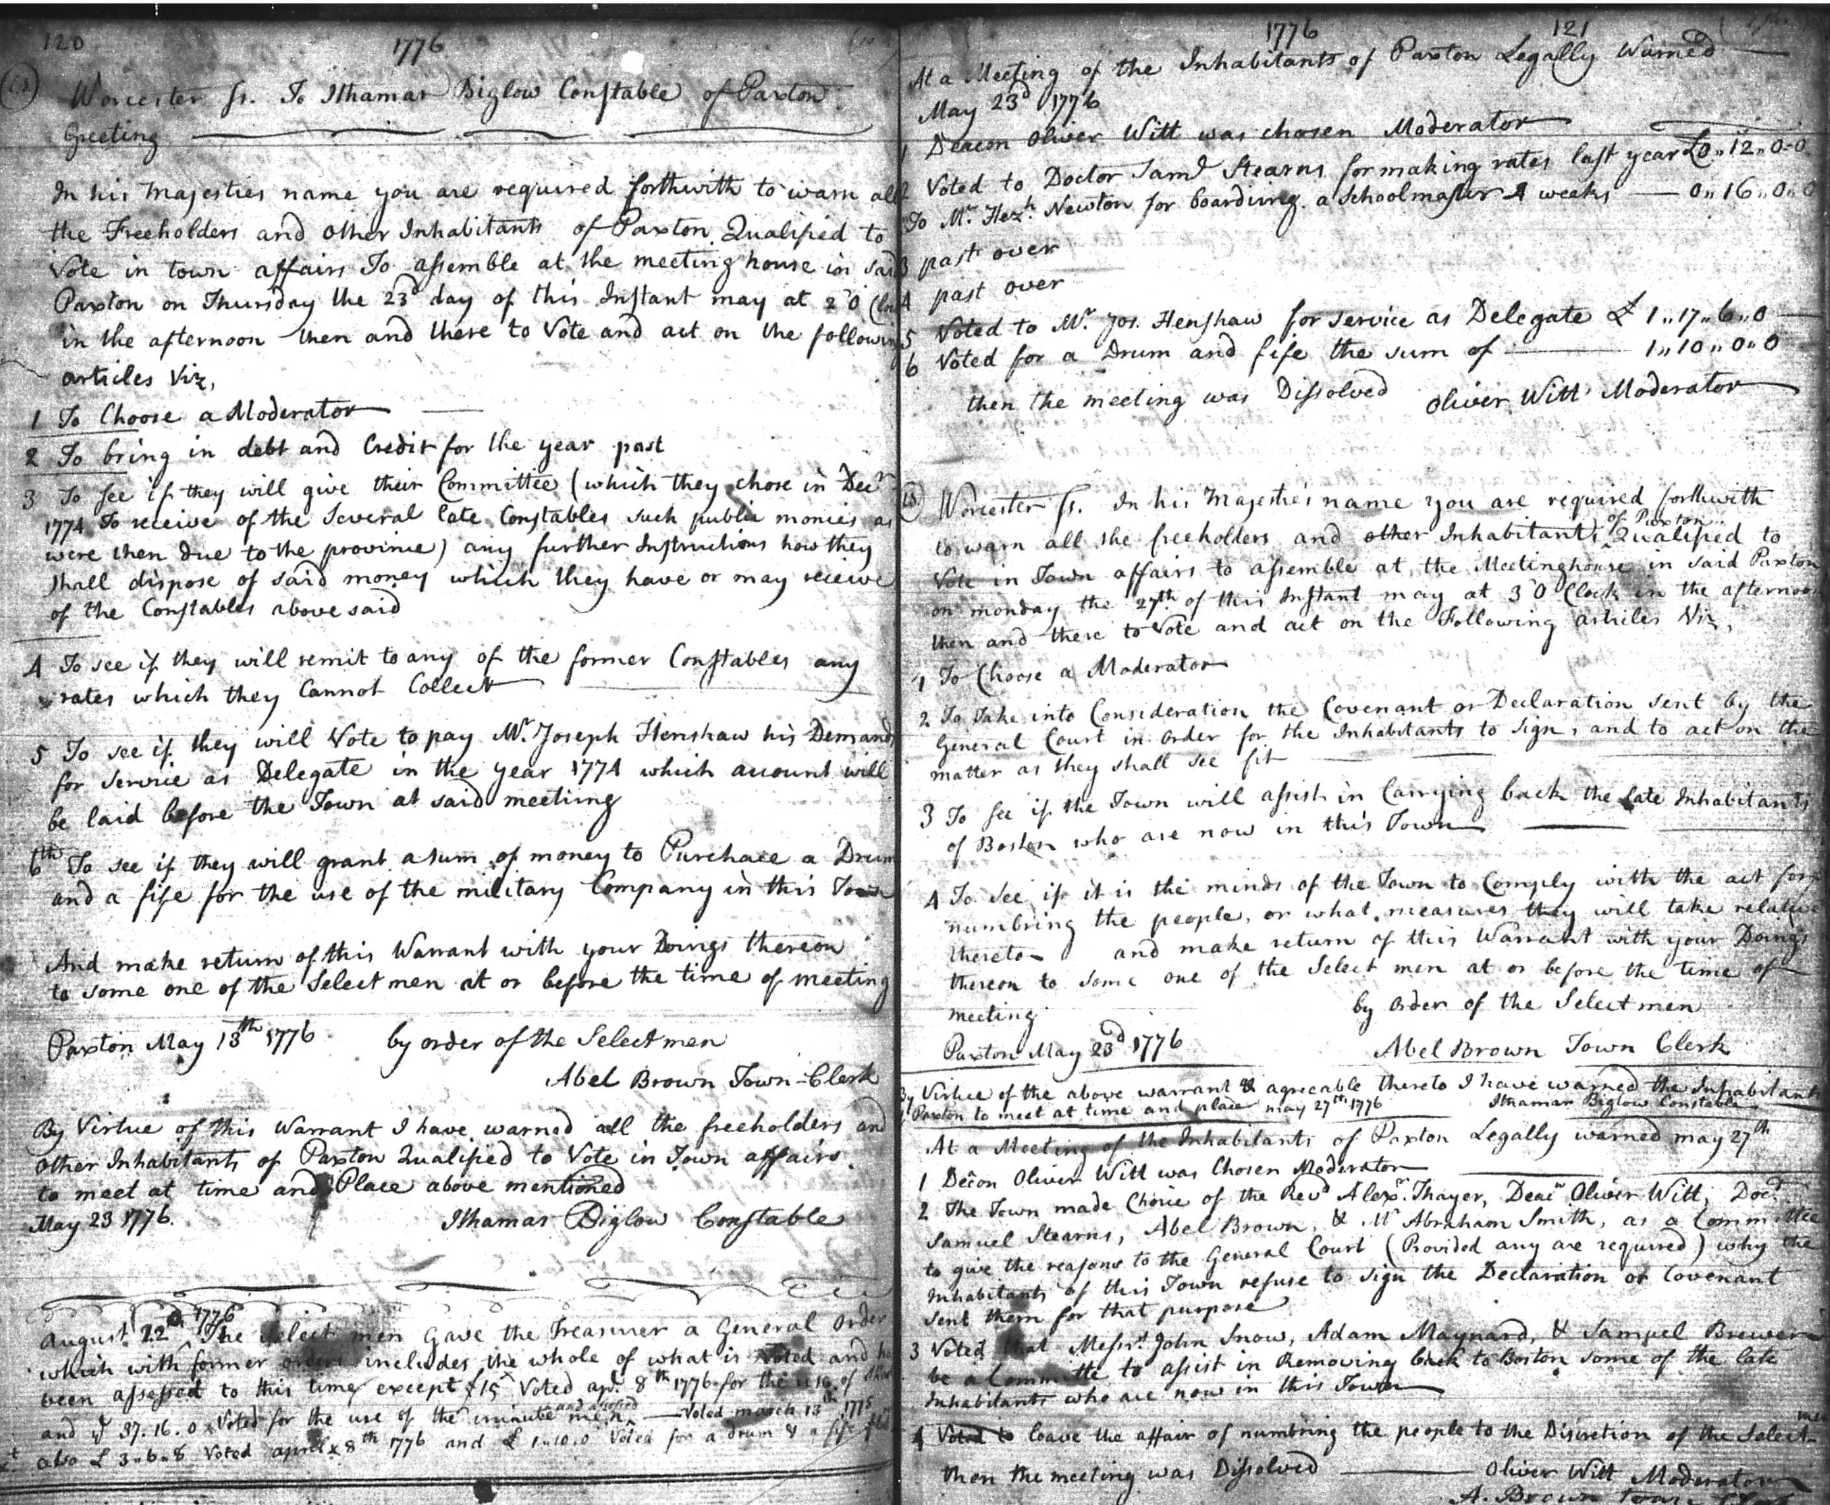 120
1776
Worcester ss. To Ithamar Biglow Constable of Paxton
Greeting
In his majesties name you are required forthwith to warn all
the Freeholders and other Inhabitants of Paxton Qualified to
Vote in town affairs To assemble at the meeting house in said
Paxton on Thursday the 23d day of this Instant may at 2 'O
in the afternoon then and there to Vote and act on the following
articles Viz,
1 To Choose a Moderator
2 To bring in debt and Credit for the year past
3 To see if they will give their Committee (which they chose in Decr
1774 To receive of the several late Constables such public monies as
were then due to the province) any further Instructions how they
shall dispose of said money which they have or may receive
of the Constables above said
4 To see if they will remit to any of the former Constables any
rates which they Cannot Collect
5 To see if they will Vote to pay Mr. Joseph Henshaw his Demands
for service as Delegate in the year 1774 which account will
be laid before the Town at said meeting
6th To see if they will grant a sum of money to Purchace a Drum
and a fife for the use of the military Company in this Town
And make return of this Warrant with your Doings thereon
to some one of the Select men at or before the time of meeting
Paxton May 13th 1776 by order of the Select men
Abel Brown Town-Clerk
By Virtue of this Warrant I have warned all the freeholders and
other Inhabitants of Paxton Qualified to Vote in Town affairs
to meet at time and Place above mentioned
May 23 1776. Ithamar Biglow Constable
August 22d 1776 The Select men Gave the Treasurer a General Order
which with former orders includes the whole of what is Voted and
been assessed to this time except £15 Voted apr. 8th 1776 for the use of
and £ 37.16.0 Voted and assessed for the use of the minute men Voted march 13th 1775
also £ 3.6.8 Voted april 8th 1776 and £ 1.10.0 Voted for a drum & a fife
1776 121
At a Meeting of the Inhabitants of Paxton Legally Warned
May 23d 1776
1 Deacon Oliver Witt was chosen Moderator
2 Voted to Doctor Saml Stearns for making rates last year £0,,12,,0-0
To Mr. Hezh. Newton for boarding a Schoolmaster 4 weeks 0,,16,,0,,0
3 past over
4 past over
5 Voted to Mr. Jos. Henshaw for service as Delegate £ 1,,17,,6,,0
6 Voted for a Drum and fife the sum of 1,,10,,0,,0
then the meeting was Dissolved Oliver Witt Moderator
Worcester ss. In his Majestie's name you are required forthwith
to warn all the freeholders and other Inhabitants of Paxton Qualified to
Vote in Town affairs to assemble at the Meetinghouse in said Paxton
on monday the 27th of this Instant may at 3 'O Clock in the afternoon
then and there to Vote and act on the Following articles Viz,
1 To Choose a Moderator
2 To Take into Consideration the Covenant or Declaration sent by the
General Court in order for the Inhabitants to sign, and to act on the
matter as they shall see fit
3 To see if the Town will assist in Carrying back the late Inhabitants
of Boston who are now in this Town
4 To see if it is the minds of the Town to Comply with the act for
numbring the people, or what measures they will take relative
thereto and make return of this Warrant with your Doings
thereon to some one of the Select men at or before the time of
meeting by order of the Select men
Paxton May 23d 1776 Abel Brown Town Clerk
By Virtue of the above warrant & agreeable thereto I have warned the Inhabitants
Paxton to meet at time and place may 27th 1776 Ithamar Biglow Constable
At a Meeting of the Inhabitants of Paxton Legally warned may 27th
1 Decon Oliver Witt was Chosen Moderator
2 The Town made Choice of the Revd Alexr. Thayer, Deacn Oliver Witt, Doct.
Samuel Stearns, Abel Brown, & Mr Abraham Smith, as a Committee
to give the reasons to the General Court (Provided any are required) why the
Inhabitants of this Town refuse to sign the Declaration or Covenant
sent them for that purpose
3 Voted that Messrs. John Snow, Adam Maynard, & Samuel Brewer
be a Committe to assist in Removing back to Boston some of the late
Inhabitants who are now in this Town
4 Voted to leave the affair of numbring the people to the Discretion of the Select men
then the meeting was Dissolved Oliver Witt Moderator
A. Brown Town